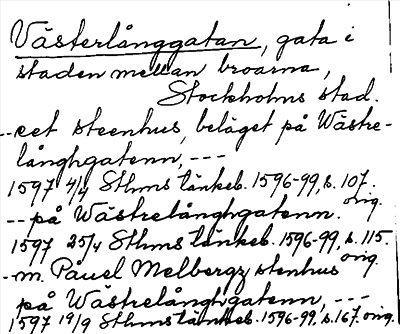 Västerlånggatan, gata i
staden mellan broarna,
Stockholms stad.
--eet steenhus, beläget på Wästre-
långhgatenn, ---
1597 4/4 Sthms tänkeb. 1596-99, s. 107.
orig.
-- på Wästrelånghgatenn.
1597 25/4 Sthms tänkeb. 1596-99, s. 115.
orig.
-m. Påuel Melbergz stenhus
på Wästrelånghgatenn, ---
1597 19/9 Sthms tänkeb. 1596-99, s. 167. orig.